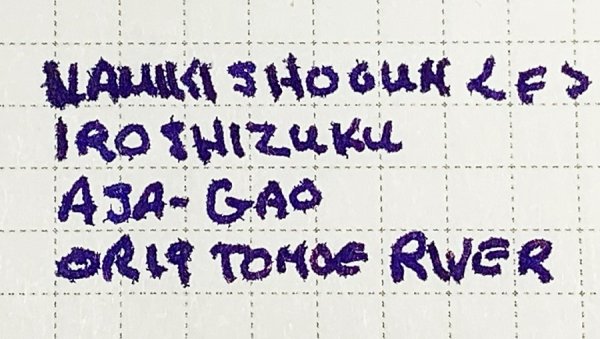 NAMIKI SHOGUN <F>
IROSHIZUKU
ASA-GAO
ORIG TOMOE RIVER